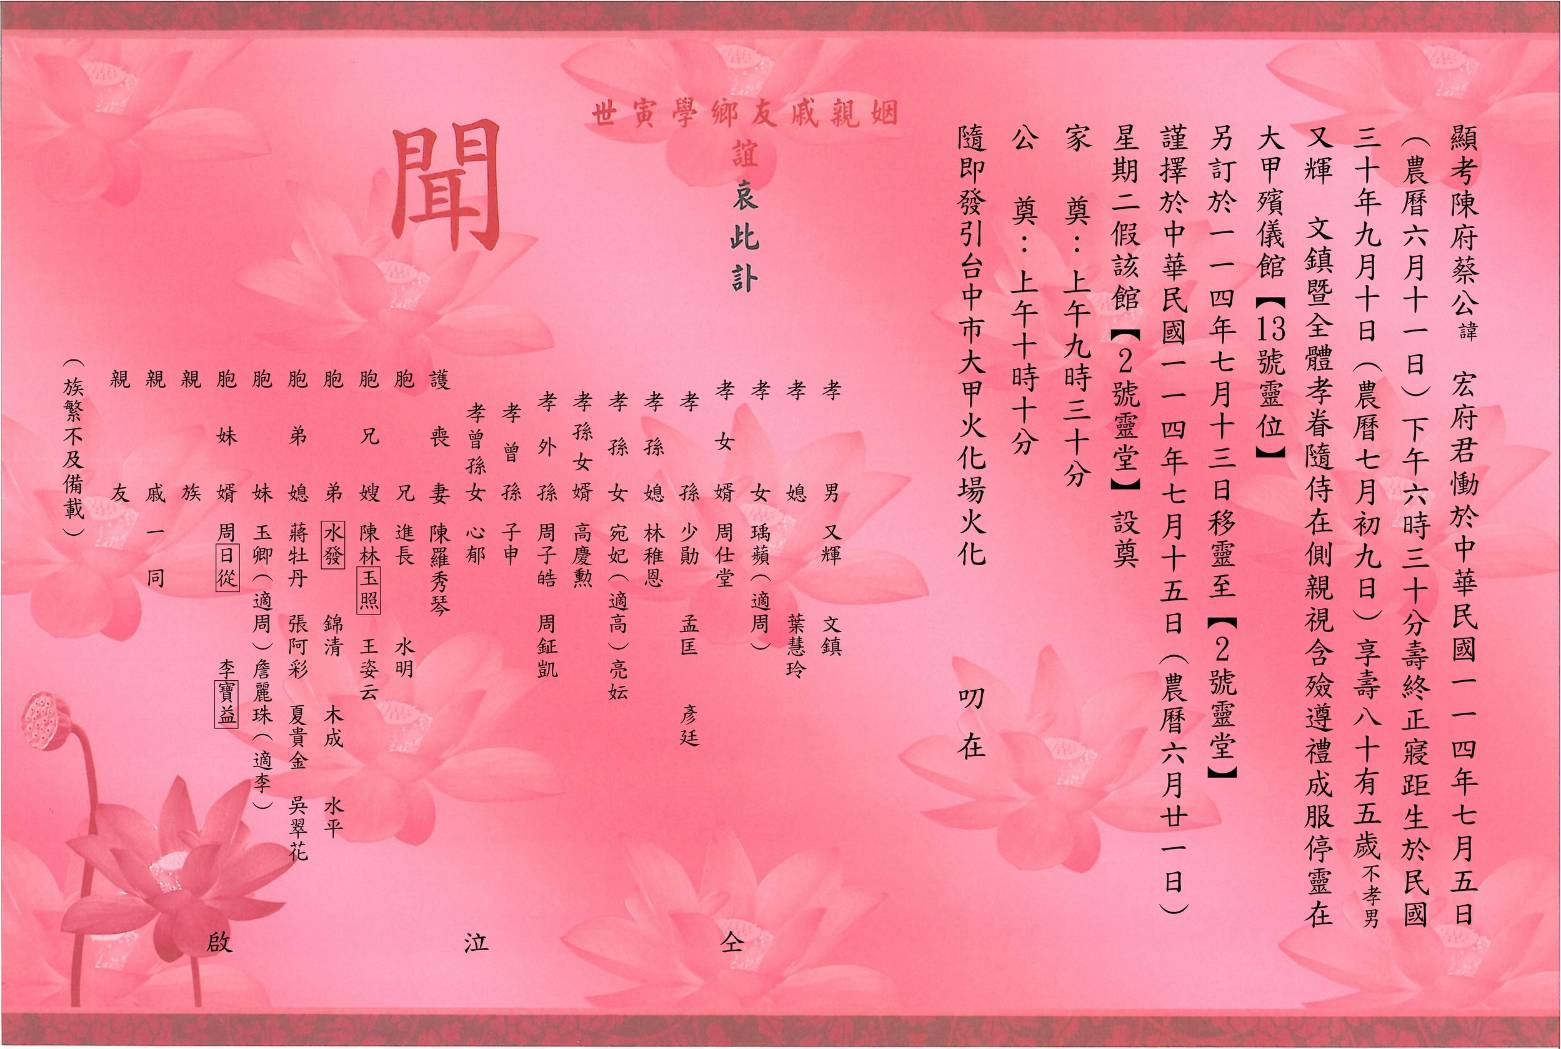 顯考陳府蔡公諱　宏府君慟於中華民國一一四年七月五日
（農曆六月十一日）下午六時三十分壽終正寢距生於民國
三十年九月十日（農曆七月初九日）享壽八十有五歲不孝男
又輝　文鎮暨全體孝眷隨侍在側親視含殮遵禮成服停靈在
大甲殯儀館【13號靈位】
另訂於一一四年七月十三日移靈至【2號靈堂】
謹擇於中華民國一一四年七月十五日（農曆六月廿一日）
星期二假該館【2號靈堂】設奠
家　奠：上午九時三十分
公　奠：上午十時十分
隨即發引台中市大甲火化場火化　　　叨在
姻親戚友鄉學寅世
誼哀此訃
聞
孝男　又輝　文鎮
孝媳　葉慧玲
孝女　瑀蘋（適周）
孝女婿　周仕堂
孝孫　少勛　孟匡　彥廷
孝孫媳　林稚恩
孝孫女　宛妃（適高）亮妘
孝孫女婿　高慶勲
孝外孫　周子皓　周鉦凱
孝曾孫　子申
孝曾孫女　心郁
護喪妻　陳羅秀琴
胞兄　進長　水明
胞兄嫂　陳林玉照　王姿云
胞弟　水發　錦清　木成　水平
胞弟媳　蔣牡丹　張阿彩　夏貴金　吳翠花
胞妹　玉卿（適周）詹麗珠（適李）
胞妹婿　周日從　李寶益
親族
親戚一同
親友
（族繁不及備載）
仝　泣　啟